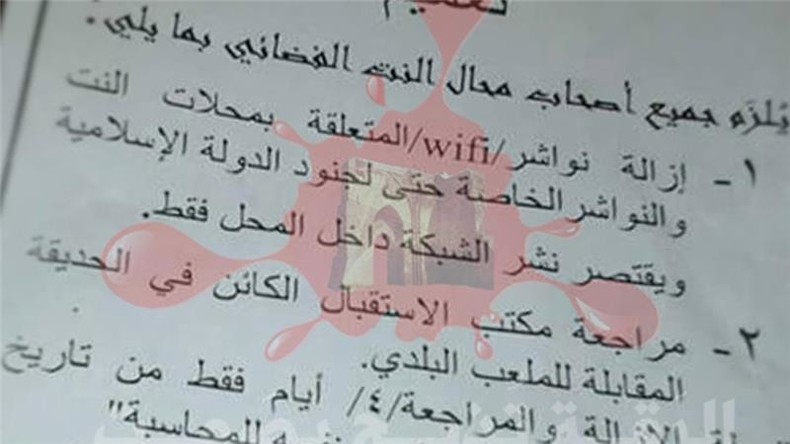 تعميم
يُلزم جميع أصحاب محال النت الفضائي بما يلي:
١- إزالة نواشر/wifi/المتعلقة بمحلات النت
والنواشر الخاصة حتى لجنود الدولة الإسلامية
ويقتصر نشر الشبكة داخل المحل فقط.
٢- مراجعة مكتب الاستقبال الكائن في الحديقة
المقابلة للملعب البلدي.
الإزالة والمراجعة/٤/ أيام فقط من تاريخ
للمحاسبة"
الرقة تذبح بصمت